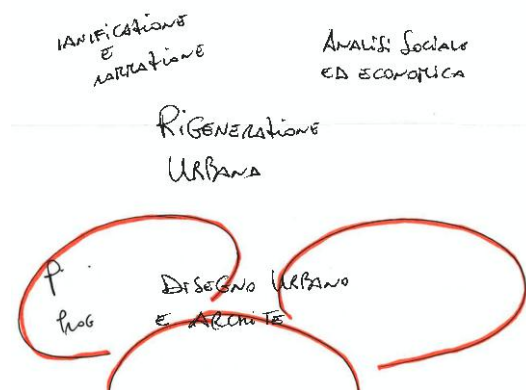 IANIFICAZIONE
E
NARRAZIONE
ANALISI SOCIALE
ED ECONOMICA
RIGENERAZIONE
URBANA
P.
PROG
DISEGNO URBANO
E ARCHITE